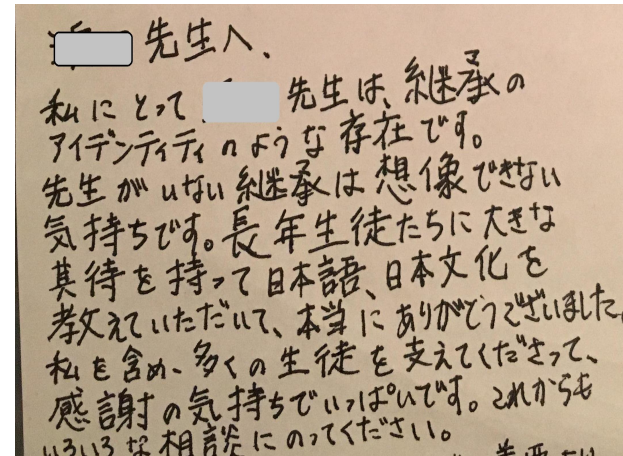 先生へ、
私にとって 先生は、継承の
アイデンティティのような存在です。
先生がいない継承は想像できない
気持ちです。長年生徒たちに大きな
期待を持って日本語、日本文化を
教えていただいて、本当にありがとうございました。
私を含め、多くの生徒を支えてくださって、
感謝の気持ちでいっぱいです。これからも
いろいろな相談にのってください。